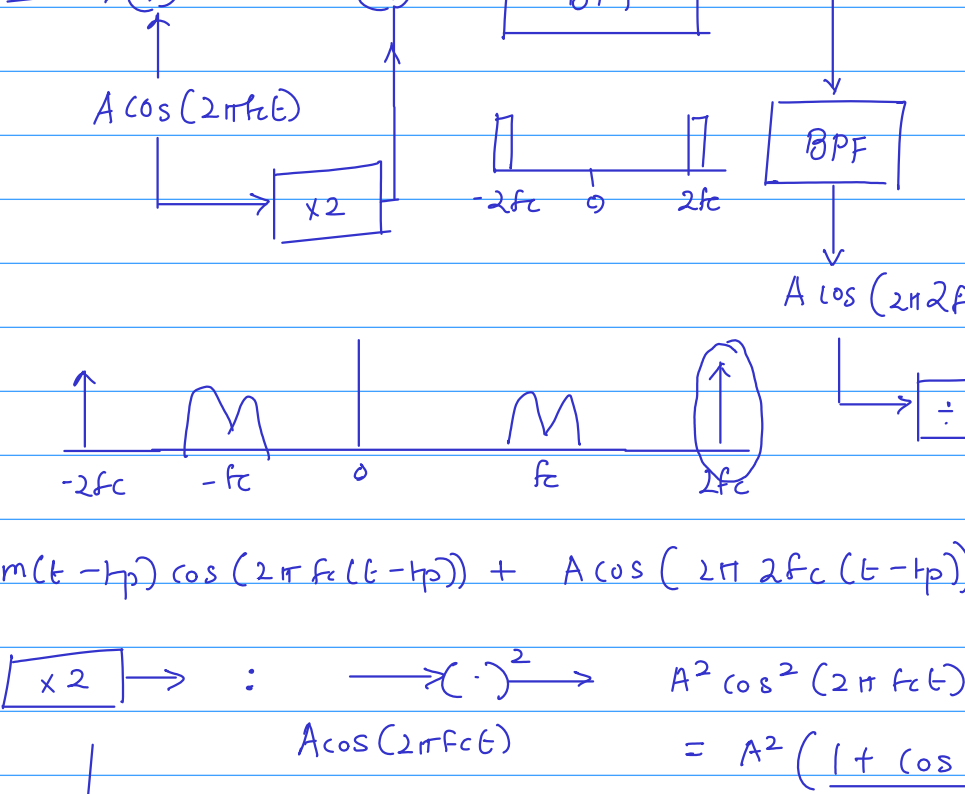 A cos(2πfct)
BPF
x2
-2fc 0 2fc
A cos(2π2f
÷
-2fc -fc 0 fc 2fc
m(t-tp) cos(2π fc(t-tp)) + A cos(2π 2fc(t-tp)
x2 : (·)² A² cos²(2π fct)
Acos(2πfct) = A²(1 + cos